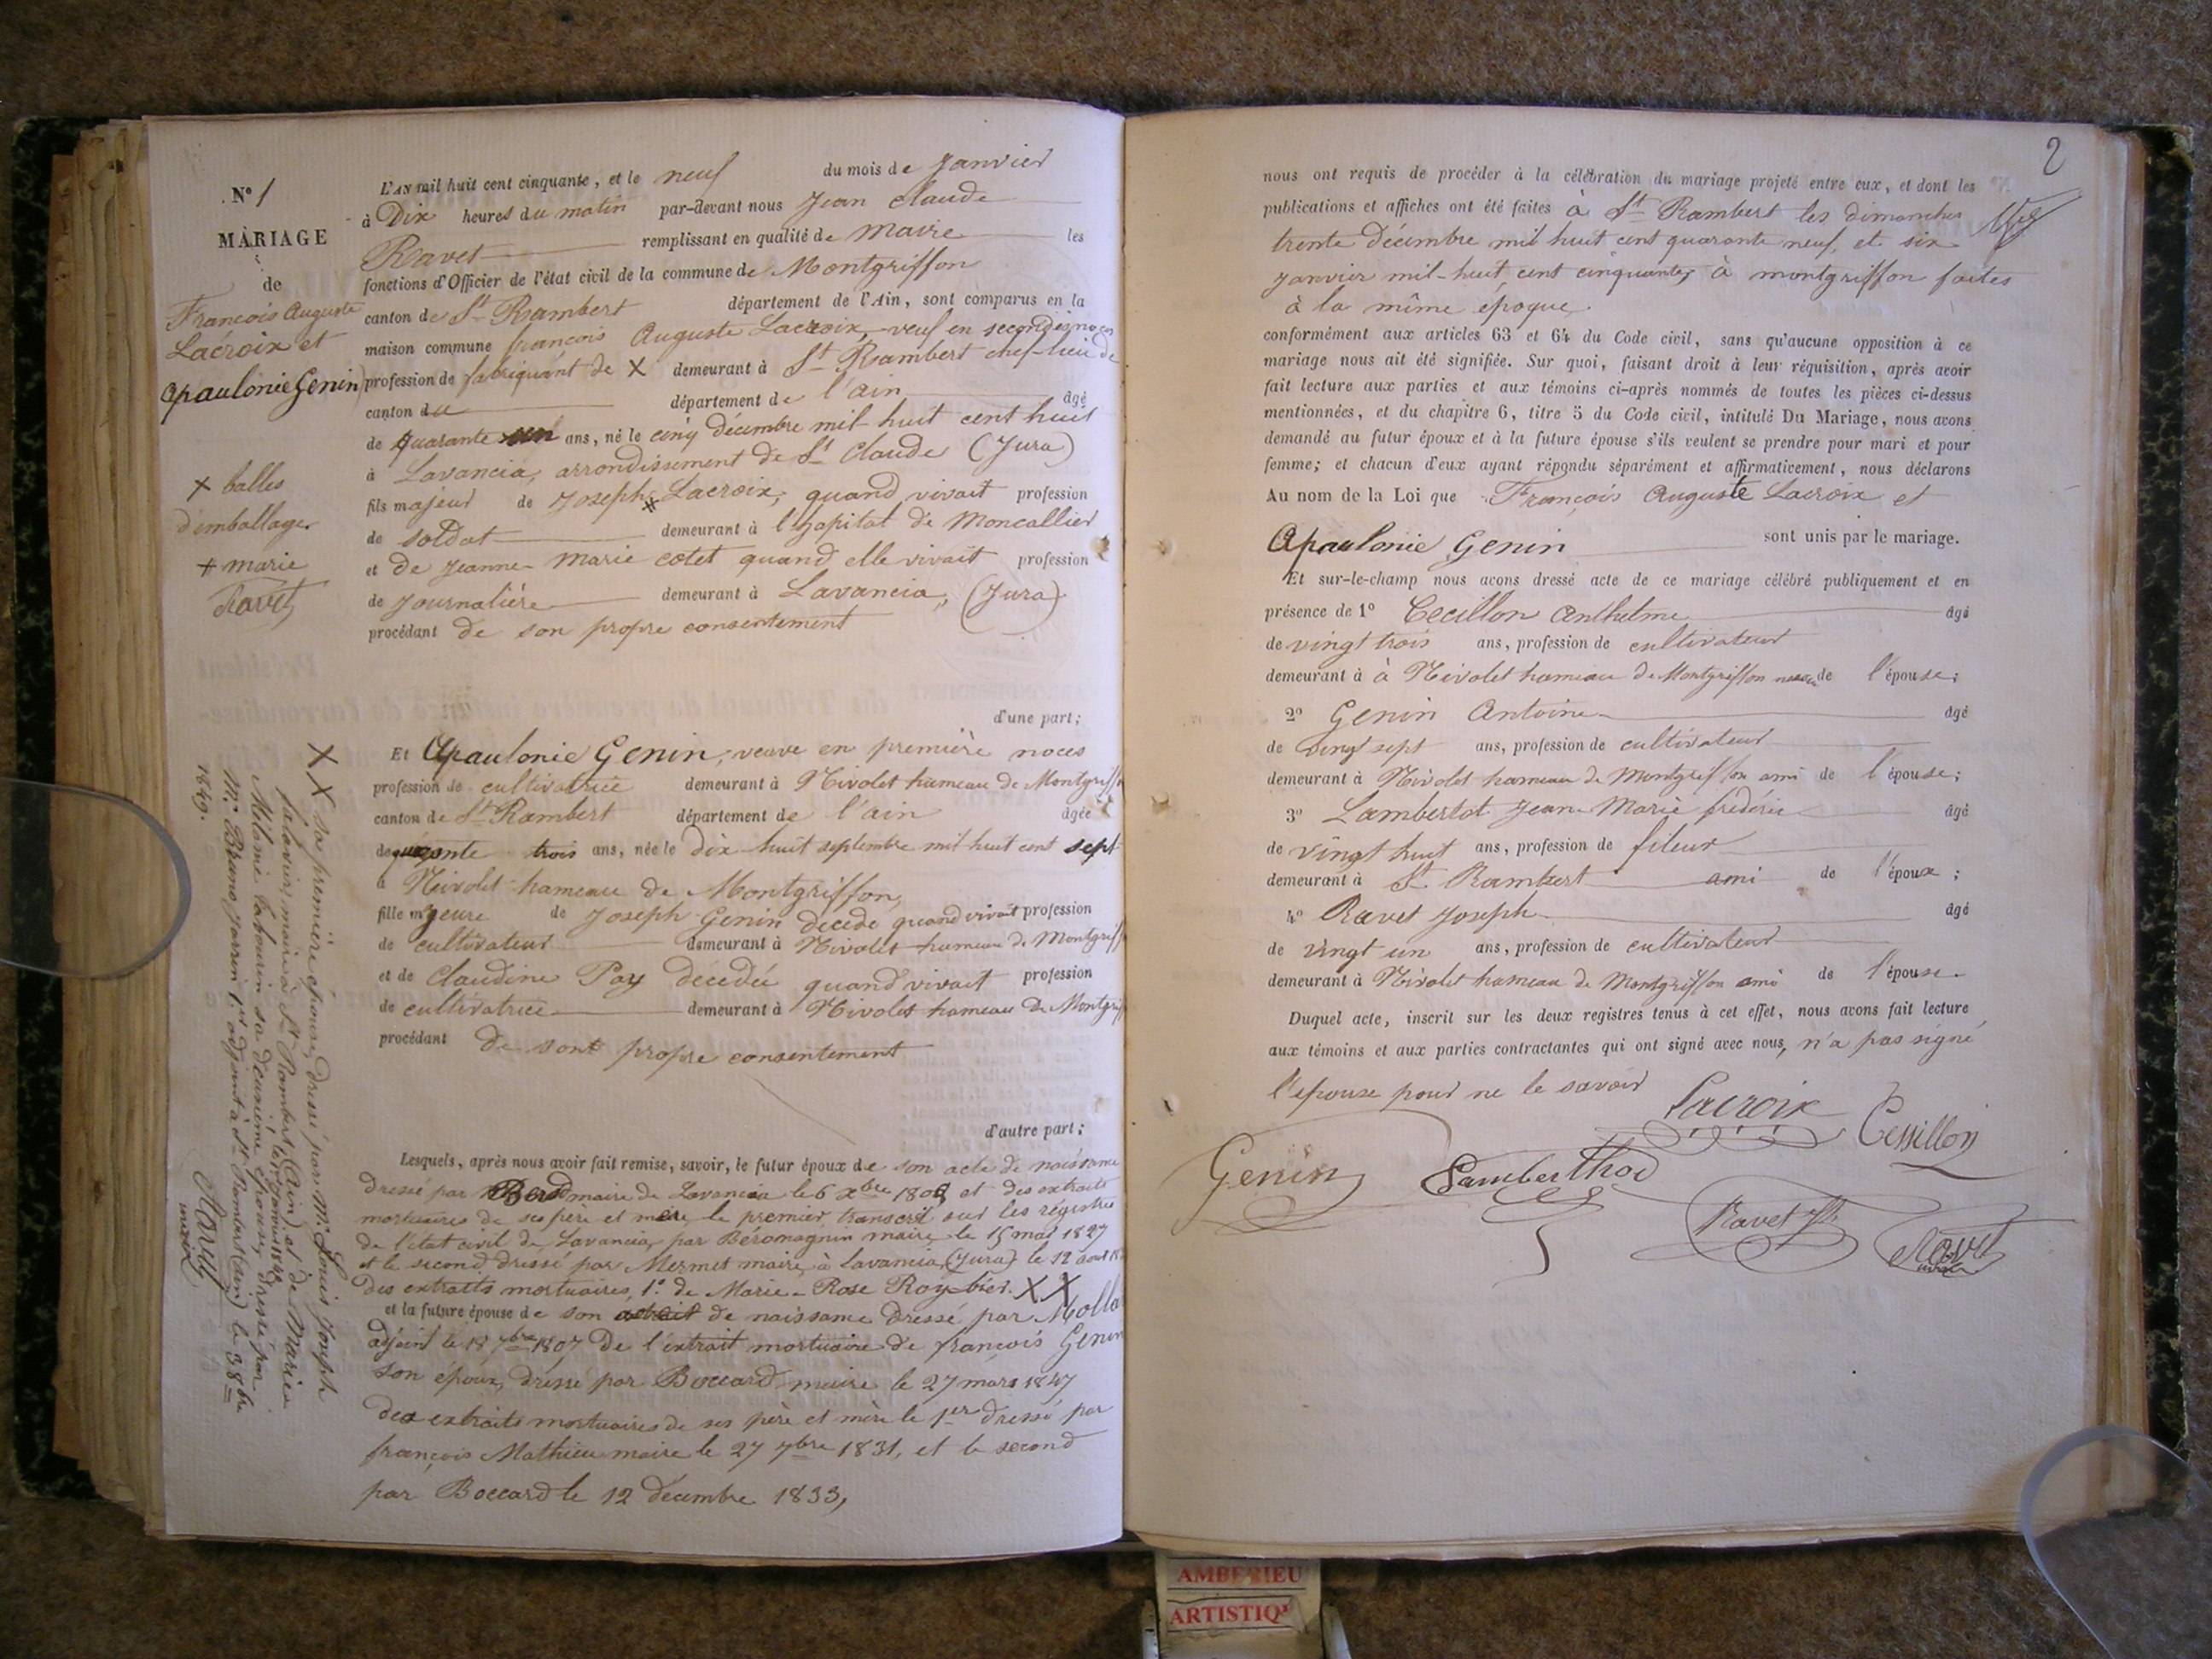 N° 1
MARIAGE
de
François Auguste
Lacroix et
Apaulonie Genin
X balles
d'emballage
# marie
Ravet
L'AN mil huit cent cinquante, et le neuf du mois de Janvier
à Dix heures du matin par-devant nous Jean claude
Ravet remplissant en qualité de maire les
fonctions d'Officier de l'état civil de la commune de Montgriffon
canton de St Rambert département de l'Ain, sont comparus en la
maison commune françois Auguste Lacroix, veuf en secondes noces
profession de fabriquant de X demeurant à St Rambert chef-lieu de
canton du département de l'ain âgé
de quarante un ans, né le cinq décembre mil huit cent huit
à Lavancia, arrondissement de St Claude (Jura)
fils majeur de Joseph # Lacroix, quand vivait profession
de soldat demeurant à l'hopital de Moncallier
et de Jeanne-Marie cotet quand elle vivait profession
de journalière demeurant à Lavancia, (Jura)
procédant de son propre consentement
d'une part;
Et Apaulonie Genin, veuve en première noces
profession de cultivatrice demeurant à Nivolet hameau de Montgriff
canton de St Rambert département de l'ain âgée
de quarante trois ans, née le dix huit septembre mil huit cent sept
à Nivolet hameau de Montgriffon,
fille majeure de Joseph Genin décédé quand vivait profession
de cultivateur demeurant à Nivolet hameau de Montgriff
et de Claudine Pay décédée quand vivait profession
de cultivatrice demeurant à Nivolet hameau de Montgriff
procédant de sont propre consentement
d'autre part;
Lesquels, après nous avoir fait remise, savoir, le futur époux de son acte de naissance
dressé par maire de Lavancia le 6 xbre 1808 et des extraits
mortuaires de ses père et mère le premier transcrit sur les régistres
de l'état civil de Lavancia, par Béromagnin maire le 15 mai 1827
et le second dressé par Mermet maire à lavancia (Jura) le 12 aout
des extraits mortuaires, 1° de Marie-Rose Roy-bier. X X
et la future épouse de son de naissance dressé par Molla
adjoint le 18 7bre 1807 De l'extrait mortuaire de françois Genin
son époux, dressé par Boccard maire le 27 mars 1847
des extraits mortuaires de ses père et mère le 1er dressé par
françois Mathieu maire le 27 7bre 1831, et le second
par Boccard le 12 decembre 1833,
X X sa première épouse, dressé par Mr Louis Joseph
maire à St Rambert (Ain) et de Marie
Mélanie sa deuxième épouse, dressé par
Mr Bruno 1er adjoint à St Rambert (ain) le 3 8bre
1849.
Ravet
maire
2
nous ont requis de procéder à la célébration du mariage projeté entre eux, et dont les
publications et affiches ont été faites à St Rambert les dimanches
trente Décembre mil huit cent quarante neuf, et six
janvier mil-huit cent cinquante, à montgriffon faites
à la même époque.
conformément aux articles 63 et 64 du Code civil, sans qu'aucune opposition à ce
mariage nous ait été signifiée. Sur quoi, faisant droit à leur réquisition, après avoir
fait lecture aux parties et aux témoins ci-après nommés de toutes les pièces ci-dessus
mentionnées, et du chapitre 6, titre 5 du Code civil, intitulé Du Mariage, nous avons
demandé au futur époux et à la future épouse s'ils veulent se prendre pour mari et pour
femme; et chacun d'eux ayant répondu séparément et affirmativement, nous déclarons
Au nom de la Loi que François Auguste Lacroix et
Apaulonie Genin sont unis par le mariage.
Et sur-le-champ nous avons dressé acte de ce mariage célébré publiquement et en
présence de 1° Cecillon Anthelme âgé
de vingt trois ans, profession de cultivateur
demeurant à à Nivolet hameau de Montgriffon neveu de l'épouse;
2° Genin Antoine âgé
de vingt sept ans, profession de cultivateur
demeurant à Nivolet hameau de Montgriffon ami de l'épouse;
3° Lambertot Jean-Marie frédéric âgé
de vingt huit ans, profession de fileur
demeurant à St Rambert ami de l'époux;
4° Ravet Joseph âgé
de vingt un ans, profession de cultivateur
demeurant à Nivolet hameau de Montgriffon ami de l'épouse
Duquel acte, inscrit sur les deux registres tenus à cet effet, nous avons fait lecture
aux témoins et aux parties contractantes qui ont signé avec nous, n'a pas signé
l'épouse pour ne le savoir
Lacroix Cessillon
Genin Lamberthod
Ravet Jh Ravet
maire
AMBERIEU
ARTISTIQ